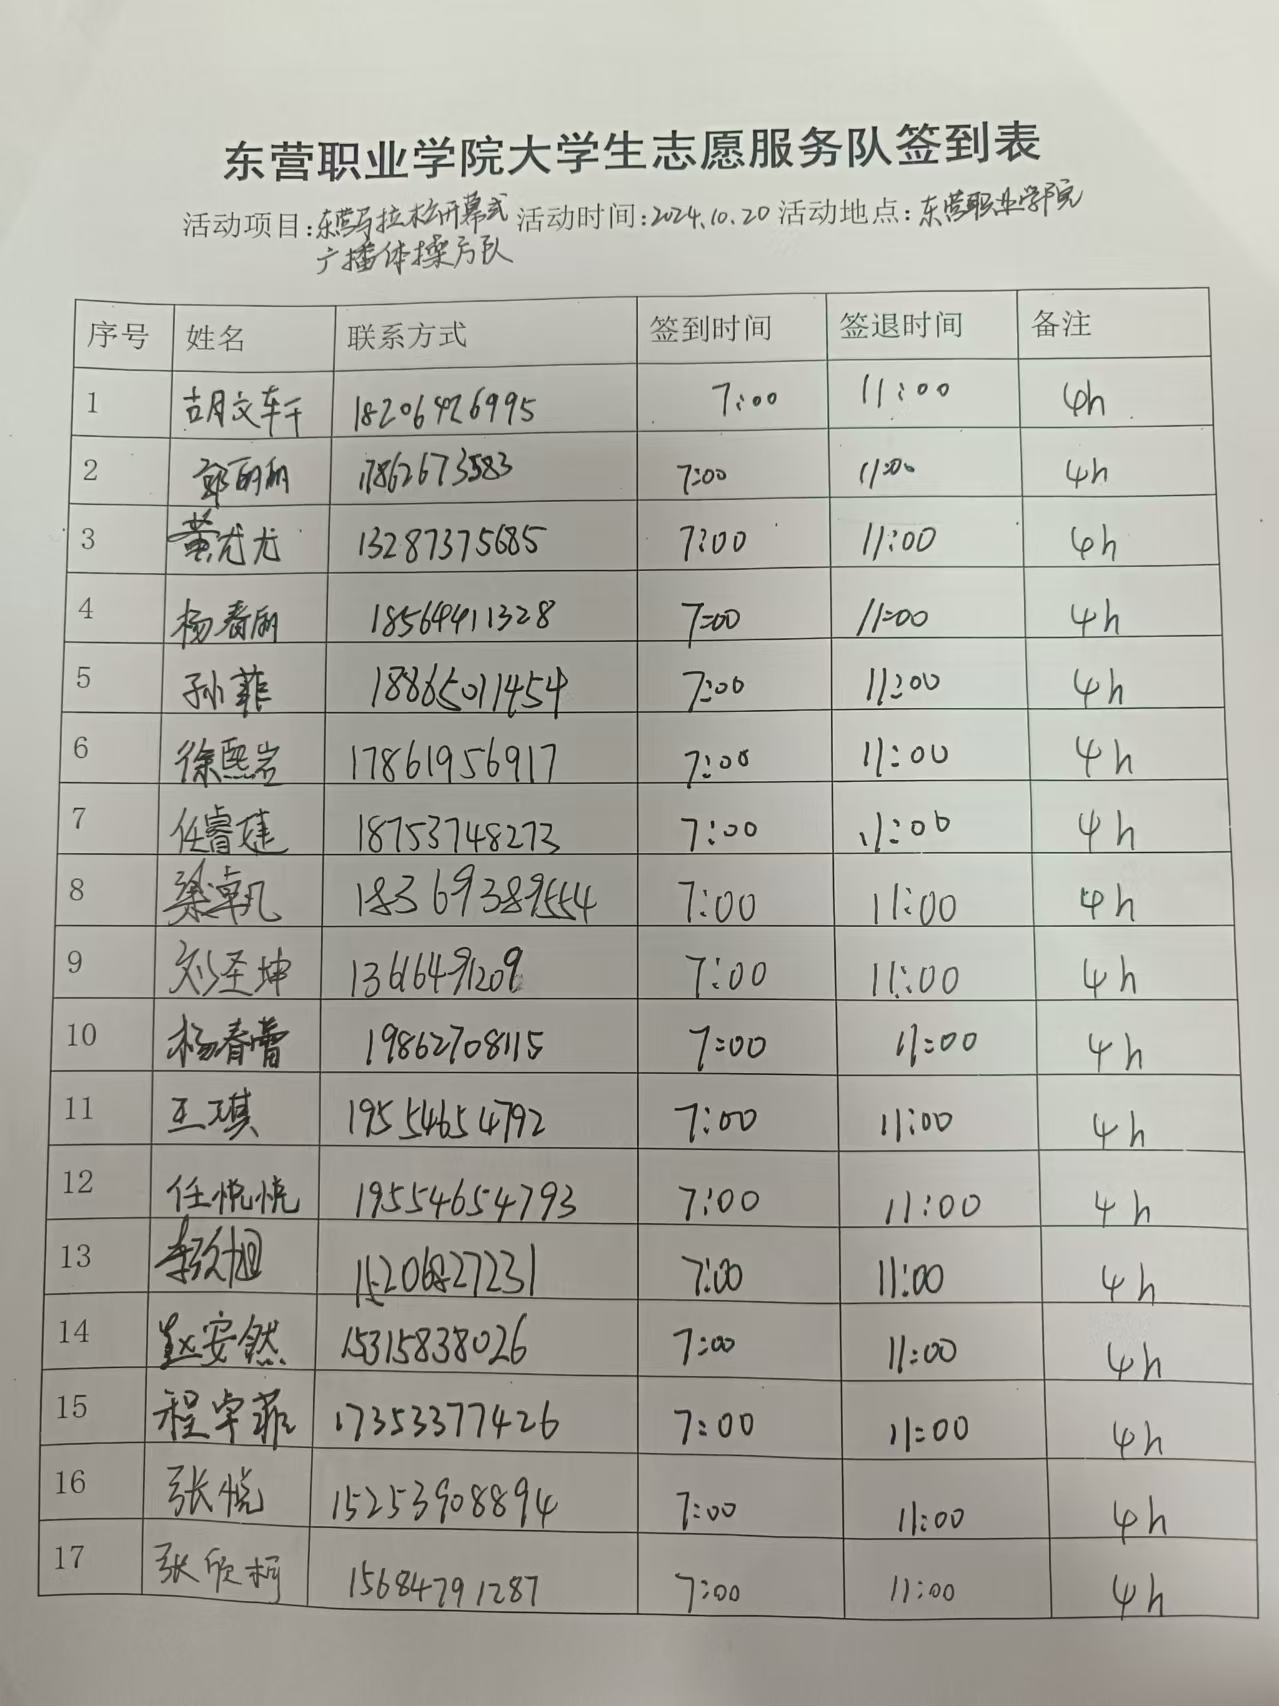 东营职业学院大学生志愿服务队签到表
活动项目:东营马拉松开幕式 活动时间:2024.10.20 活动地点:东营职业学院
广播体操方队
序号 姓名 联系方式 签到时间 签退时间 备注
1 胡文轩 18206426995 7:00 11:00 4h
2 郭丽丽 17862673583 7:00 11:00 4h
3 黄尤尤 13287375685 7:00 11:00 4h
4 杨春丽 18564411328 7:00 11:00 4h
5 孙菲 18865011454 7:00 11:00 4h
6 徐熙岩 17861956917 7:00 11:00 4h
7 任睿建 18753748273 7:00 11:00 4h
8 梁潮凡 18369389554 7:00 11:00 4h
9 刘圣坤 13616491209 7:00 11:00 4h
10 杨春蕾 19862708115 7:00 11:00 4h
11 王琪 19554654792 7:00 11:00 4h
12 任悦悦 19554654793 7:00 11:00 4h
13 15206827231 7:00 11:00 4h
14 赵安然 15315838026 7:00 11:00 4h
15 程宇菲 17353377426 7:00 11:00 4h
16 张悦 15253908894 7:00 11:00 4h
17 张欣柯 15684791287 7:00 11:00 4h